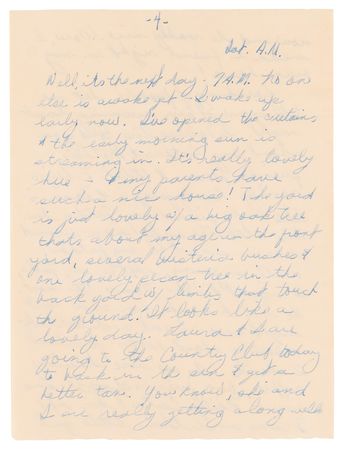 -4-
Sat. A.M.
Well, its the next day - 7 A.M. No one
else is awake yet - I wake up
early now. I've opened the curtains
& the early morning sun is
streaming in. It's really lovely
here - & my parents have
such a nice house! The yard
is just lovely w/ a big oak tree
thats about my age in the front
yard, several wisteria bushes &
one lovely pecan tree in the
back yard w/ limbs that touch
the ground. It looks like a
lovely day. Laura & I are
going to the Country Club today
to bask in the sun & get a
better tan. You know, she and
I are really getting along well